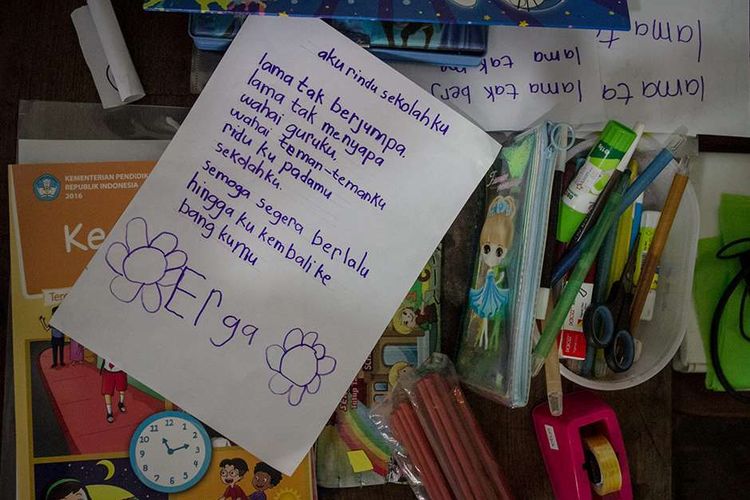 aku rindu sekolahku
lama tak berjumpa.
lama tak menyapa
wahai guruku,
wahai teman-temanku
ridu ku padamu
sekolahku.
semoga segera berlalu
hingga ku kembali ke
bang kumu
Erga
lama
lama tak
lama tak berj
lama ta
lama
KEMENTERIAN PENDIDIK
REPUBLIK INDONESIA
2016
Ke